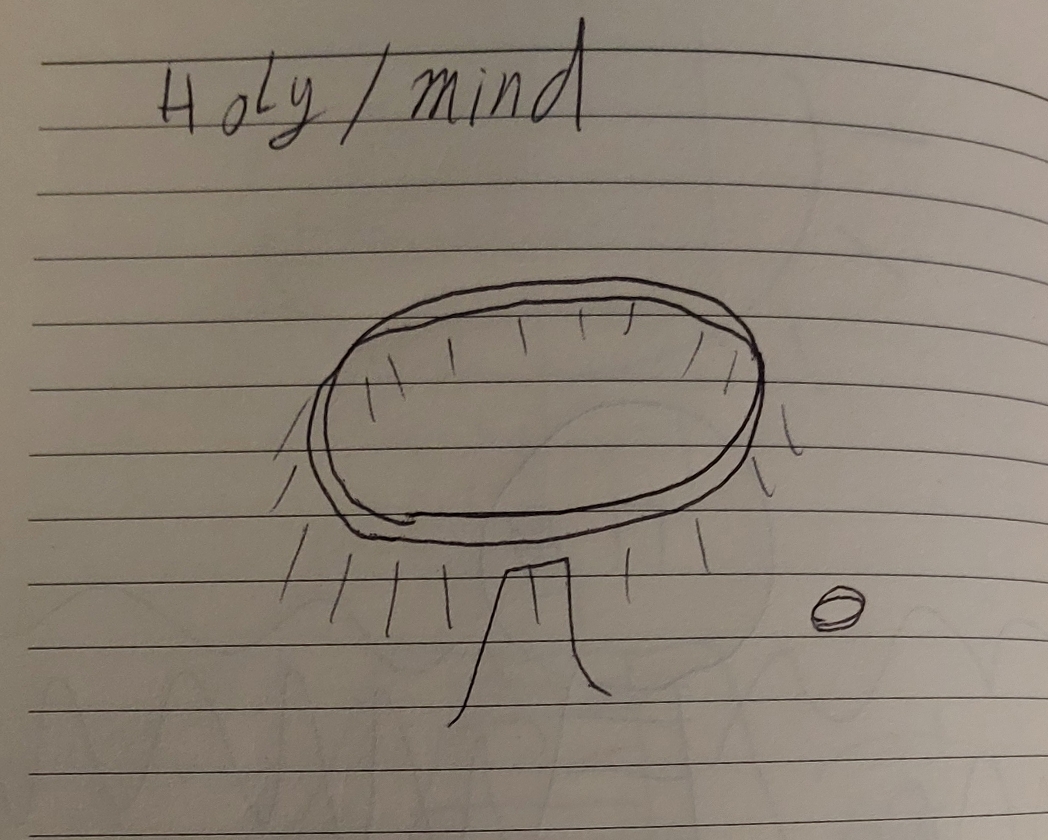 Holy / mind